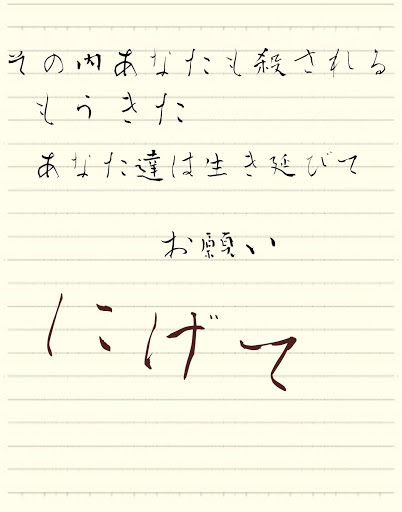 その内あなたも殺される
もうきた
あなた達は生き延びて
お願い
にげて